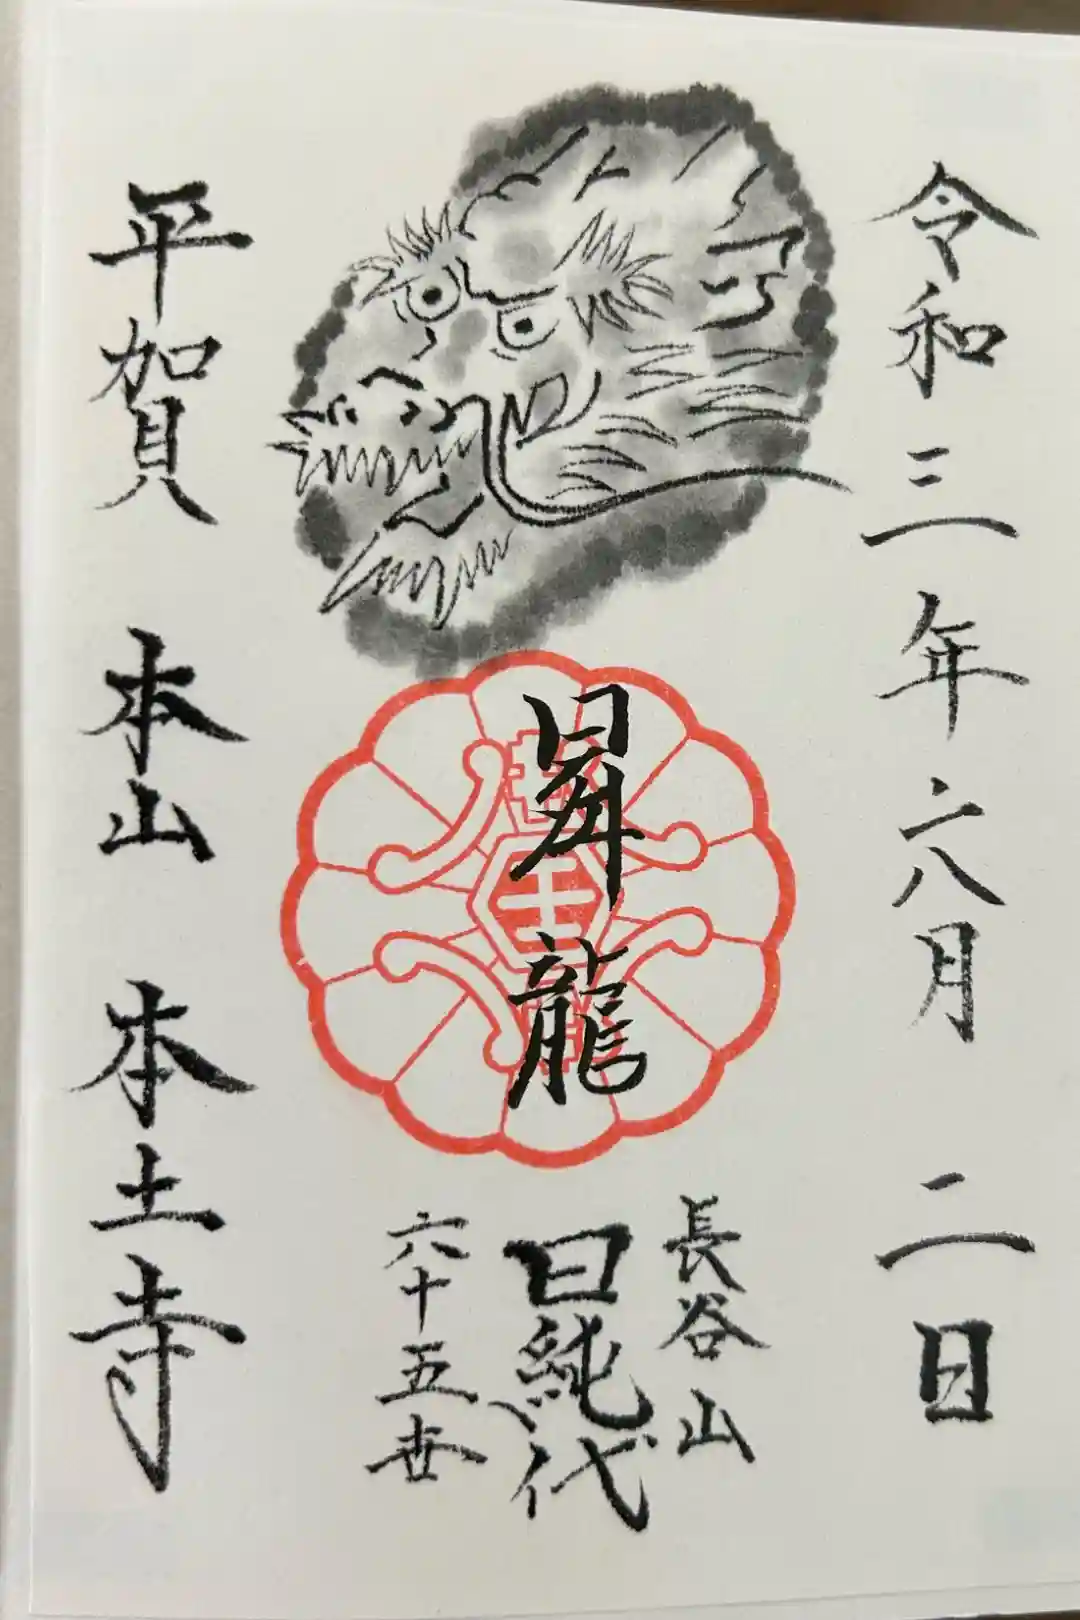 令和三年六月二日
昇龍
長谷山
日純代
六十五世
平賀 本山 本土寺